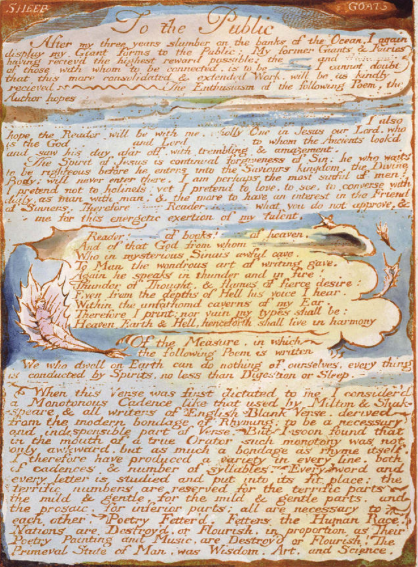 SHEEP
GOATS
To the Public
After my three years slumber on the banks of the Ocean, I again
display my Giant forms to the Public: My former Giants & Fairies
having reciev'd the highest reward possible: the and
of those with whom to be connected, is to be cannot doubt
that this more consolidated & extended Work, will be as kindly
recieved The Enthusiasm of the following Poem, the
Author hopes
I also
hope the Reader will be with me, wholly One in Jesus our Lord, who
is the God and Lord to whom the Ancients look'd
and saw his day afar off, with trembling & amazement.
The Spirit of Jesus is continual forgiveness of Sin: he who waits
to be righteous before he enters into the Saviours kingdom, the Divine
Body; will never enter there. I am perhaps the most sinful of men! I
pretend not to holiness! yet I pretend to love, to see, to converse with
daily, as man with man, & the more to have an interest in the Friend
of Sinners. Therefore Reader, what you do not approve, &
me for this energetic exertion of my talent.
Reader! of books! of heaven,
And of that God from whom
Who in mysterious Sinais awful cave
To Man the wond'rous art of writing gave,
Again he speaks in thunder and in fire!
Thunder of Thought, & flames of fierce desire:
Even from the depths of Hell his voice I hear,
Within the unfathomd caverns of my Ear.
Therefore I print; nor vain my types shall be:
Heaven, Earth & Hell, henceforth shall live in harmony
Of the Measure, in which
the following Poem is written
We who dwell on Earth can do nothing of ourselves, every thing
is conducted by Spirits, no less than Digestion or Sleep.
When this Verse was first dictated to me I consider'd
a Monotonous Cadence like that used by Milton & Shak-
speare & all writers of English Blank Verse, derived
from the modern bondage of Rhyming; to be a necessary
and indispensible part of Verse. But I soon found that
in the mouth of a true Orator such monotony was not
only awkward, but as much a bondage as rhyme itself.
I therefore have produced a variety in every line, both
of cadences & number of syllables. Every word and
every letter is studied and put into its fit place: the
terrific numbers are reserved for the terrific parts
the mild & gentle, for the mild & gentle parts, and
the prosaic, for inferior parts: all are necessary to
each other. Poetry Fetter'd, Fetters the Human Race!
Nations are Destroy'd, or Flourish, in proportion as Their
Poetry Painting and Music, are Destroy'd or Flourish! The
Primeval State of Man, was Wisdom, Art, and Science.